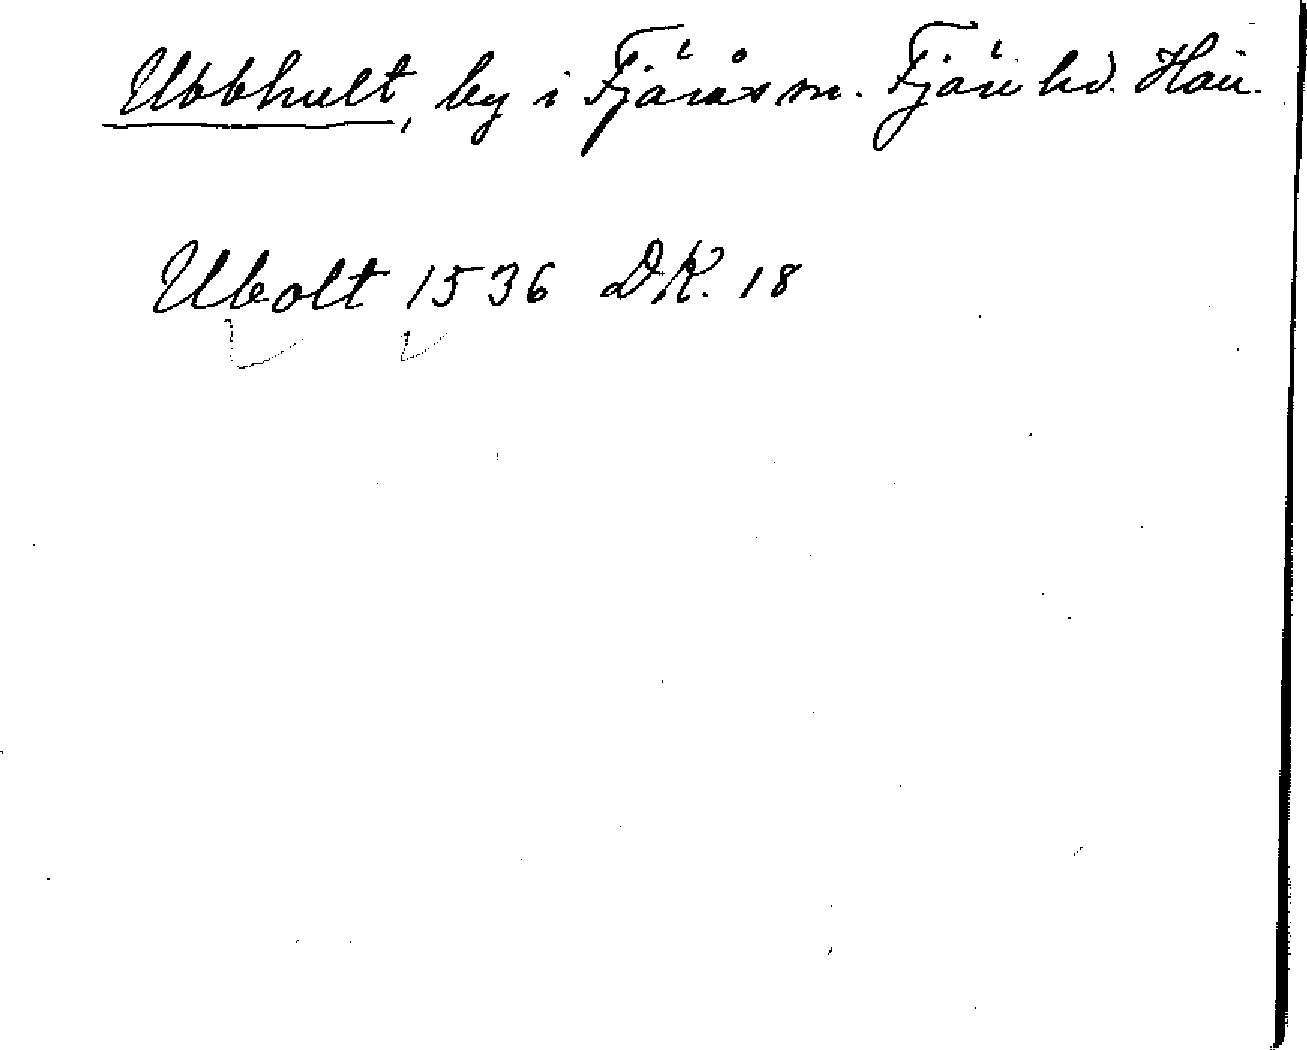 Ubbhult, by i Fjärås sn. Fjäre hd. Hall.
Ubolt 1536 DK. 18